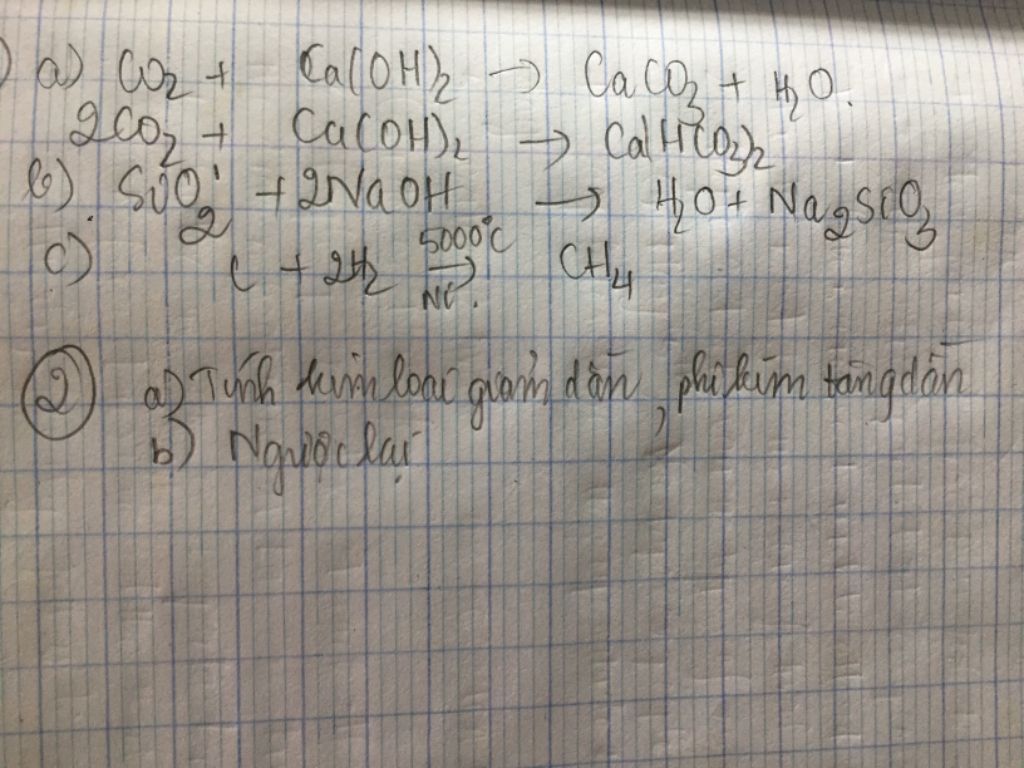 ) a) CO2 + Ca(OH)2 → CaCO3 + H2O.
2CO2 + Ca(OH)2 → Ca(HCO3)2
b) SiO2 + 2NaOH → H2O + Na2SiO3
c) C + 2H2 5000°C → Ni. CH4
② a) Tính kim loại giảm dần, phi kim tăng dần
b) Ngược lại